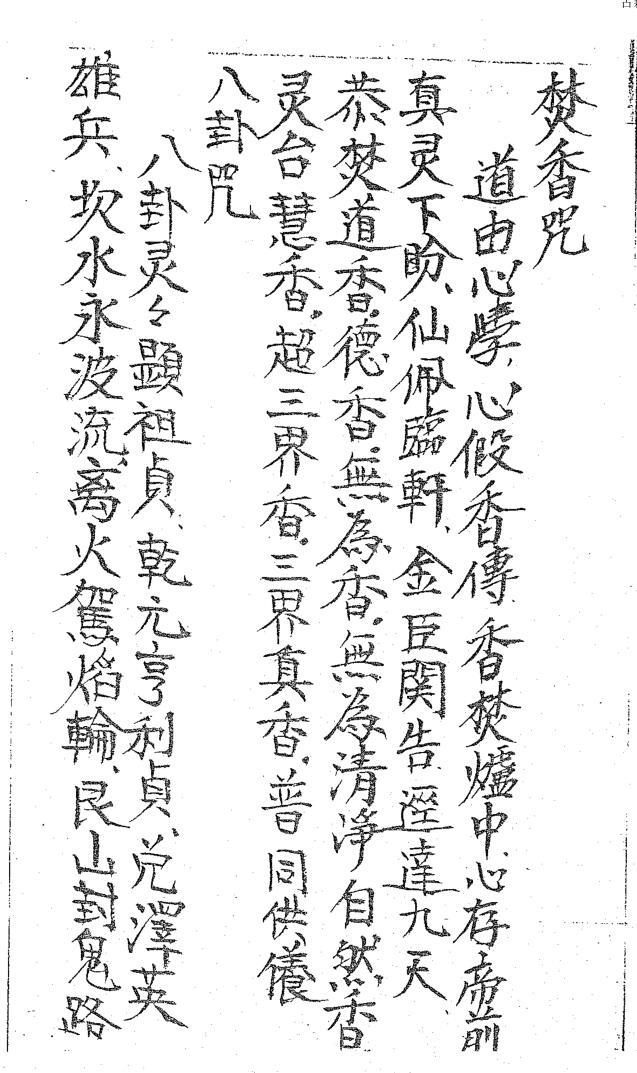 焚香咒
道由心學、心假香傳、香焚爐中、心存帝前
真灵下盼、仙佩臨軒、金臣関告、逕達九天
恭焚道香、德香、無為香、無為清淨自然香
灵台慧香、超三界香、三界真香、普同供養
八卦咒
八卦灵々顕祖貞、乾元亨利貞、兌澤英
雄兵、坎水永波流、离火駕焰輪、艮山封鬼路